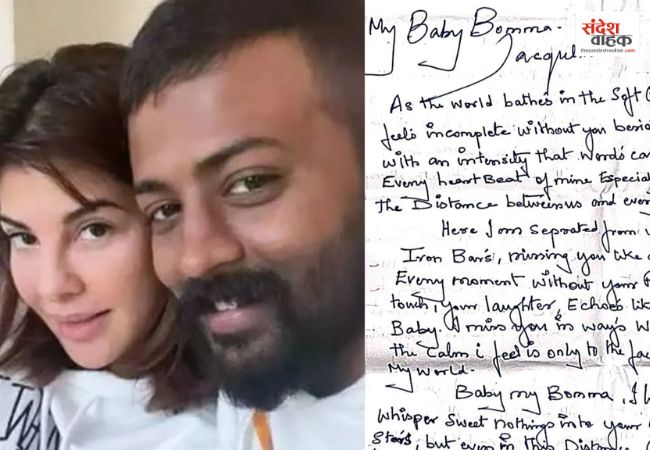 संदेश
वाहक
thesandeshwahak.com
My Baby Bomma
Jacque
As the world bathes in the Soft
feels incomplete without you besi
with an intensity that words ca
Every heartBeat of mine Especia
the Distance betweenus and eve
Here I am seprated from
Iron Bar's, missing you like
Every moment without your
touch, your laughter, Echoes like
Baby. I miss you in ways w
the Calm i feel is only to the fa
My world.
Baby my Bomma, I
whisper Sweet nothings into your
Stars, but even in this Distance